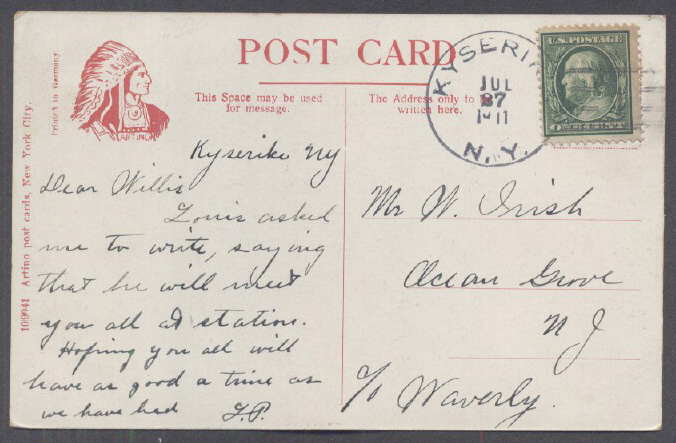 POST CARD
This Space may be used
for message.
The Address only to be
written here.
KYSERIKE
JUL
27
1911
N.Y.
U.S. POSTAGE
ONE CENT
ARTINO
Printed in Germany
109941 Artino post cards, New York City.
Kyserike NY
Dear Willis
Louis asked
me to write, saying
that he will meet
you all at station.
Hoping you all will
have as good a time as
we have had
L.P.
Mr W. Irish
Ocean Grove
N J
c/o Waverly.